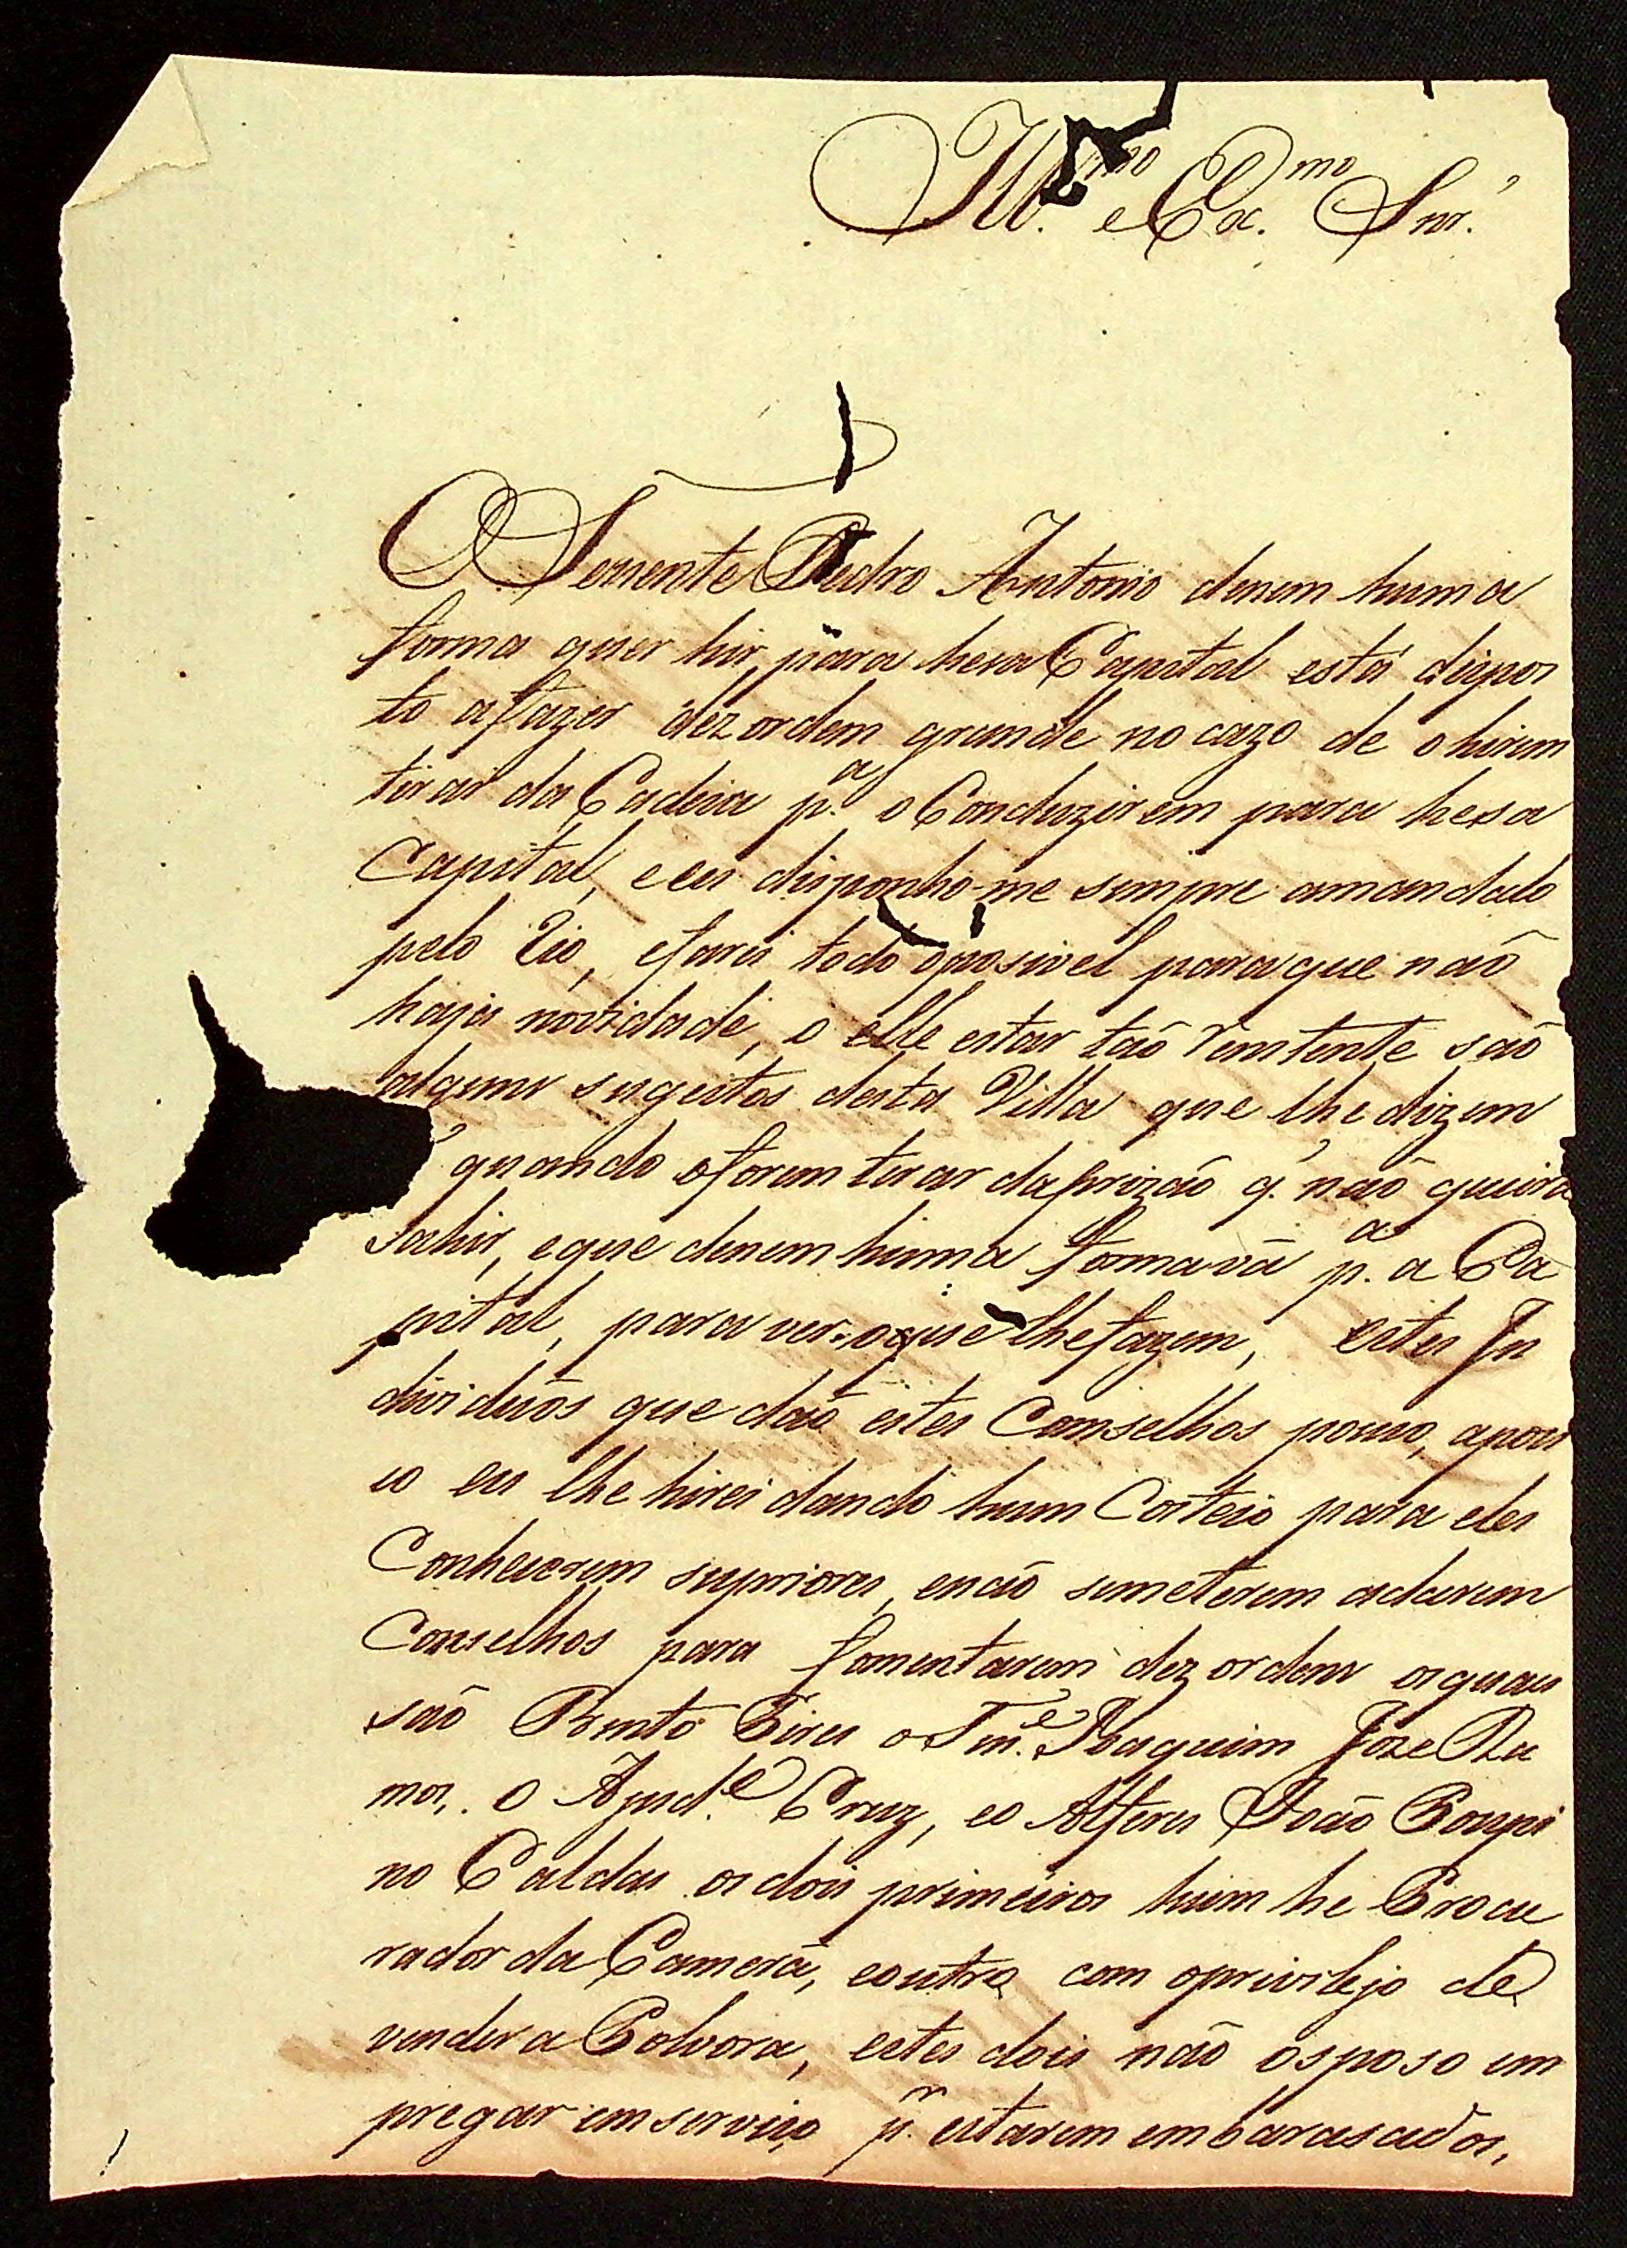 Ill.mo e Ex.mo Snr.'
O Tenente Pedro Antonio denem huma
forma quer hir, para hesa Capital está dispos
to afazer dezordem grande no cazo de ohirem
tirar da Cadeia p.a o Conduzirem para hesa
Capital, eeu disponho-me sempre amandalo
pelo Rio, efarei todo oposivel paraque não
haja novidade, o elle estar tão Remtente são
alguns sugeitos desta Villa que lhe dizem
quando oforem tirar daprizão q.' não queira
sahir, eque denemhuma formavá p.a a Ca
pital, para ver oque lhefazem, estes In
dividuos que dão estes Conselhos pouco, apou
co eu lhe hirei dando hum Corteio para eles
Conhecerem supriores, enão semeterem adarem
Conselhos para fomentarem dezordens osquais
são Bento Pires o Ten.e Joaquim Joze Ra
mos, o Ajud.e Cruz, eo Alferes João Poupi
no Caldas os dois primeiros hum he Procu
rador da Camera, eoutro com oprivilejo de
vender a Polvora, estes dois não osposo em
pregar emserviço p.r estarem embarasados,